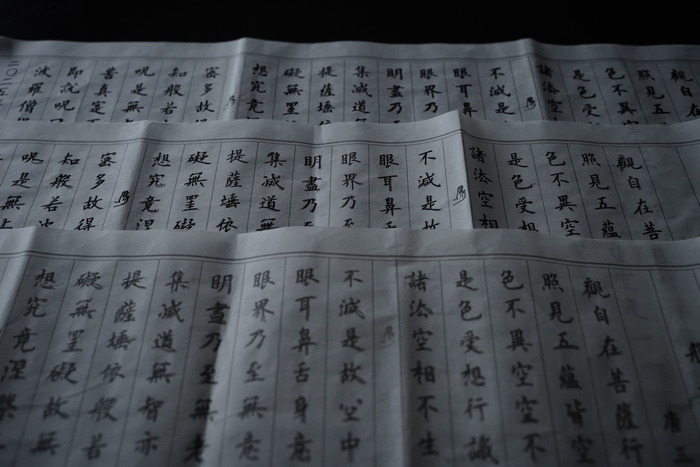 觀
照見五
色不異
是色受
諸法空
不滅是
眼耳鼻
眼界乃
明盡乃
集滅道
提薩埵
礙無罣
想究竟
密多故
知般若
呪是無
真實
即說呪
波羅僧
二〇二
觀自在菩
照見五蘊
色不異空
是色受想
諸法空相
不滅是故
眼耳鼻舌
眼界乃至
明盡乃至
集滅道無
提薩埵依
礙無罣礙
想究竟涅
密多故得
知般若波
呪是無上
般
唐三
觀自在菩薩行
照見五蘊皆空
色不異空空不
是色受想行識
諸法空相不生
不滅是故空中
眼耳鼻舌身意
眼界乃至無意
明盡乃至無老
集滅道無智亦
提薩埵依般若
礙無罣礙故無
想究竟涅槃